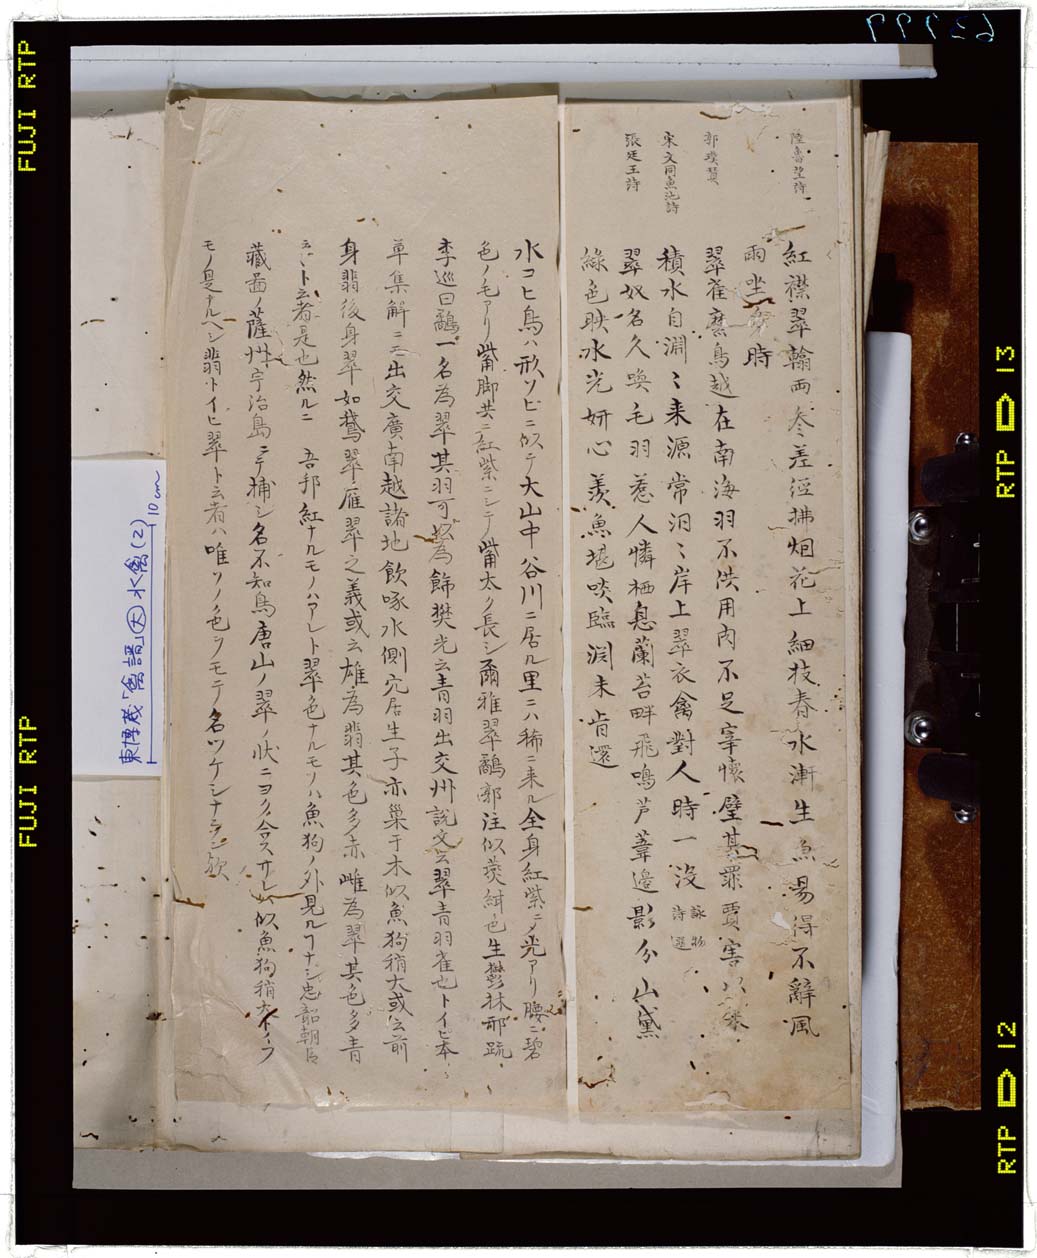 陸魯望詩
紅襟翠翰兩參差徑拂烟花上細枝春水漸生魚易得不辭風
雨坐多時
郭璞賛
翠雀麋鳥越在南海羽不供用肉不足宰懐璧其罪賈害以采
宋文同魚池詩
積水自淵〻来源常汨〻岸上翠衣禽對人時一没
詠物
詩選
張廷玉詩
翠奴名久喚毛羽惹人憐栖息蘭苕畔飛鳴芦葦邉影分山黛
緑色映水光妍心羨魚堪啖臨淵未肯還
水コヒ鳥ハ形ソビニ似テ大山中谷川ニ居ル里ニハ稀ニ来ル全身紅紫ニメ光アリ腰ニ碧
色ノ毛アリ觜脚共ニ紅紫ニシテ觜太ク長シ爾雅翠鷸郭注似燕紺色生鬱林邢疏
李巡曰鷸一名為翠其羽可以為飾樊光云青羽出交州説文云翠青羽雀也トイヒ本
草集解ニモ出交廣南越諸地飲啄水側穴居生子亦巣于木似魚狗稍大或云前
身翡後身翠如鵞翠雁翠之義或云雄為翡其色多赤雌為翠其色多青
ト云者是也然ルニ 吾邦紅ナルモノハアレト翠色ナルモノハ魚狗ノ外見ルヿナシ忠韶朝臣
藏畗ノ薩州宇治島ニテ捕シ名不知鳥唐山ノ翠ノ状ニヨク合ス サレハ似魚狗稍大ト云フ
モノ是ナルヘシ翡トイヒ翠ト云者ハ唯ソノ色ヲモテ名ツケシナラン歟
東博蔵「禽譜」大 水禽(2)
10cm
FUJI RTP
FUJI RTP
RTP 13
RTP 12
63999